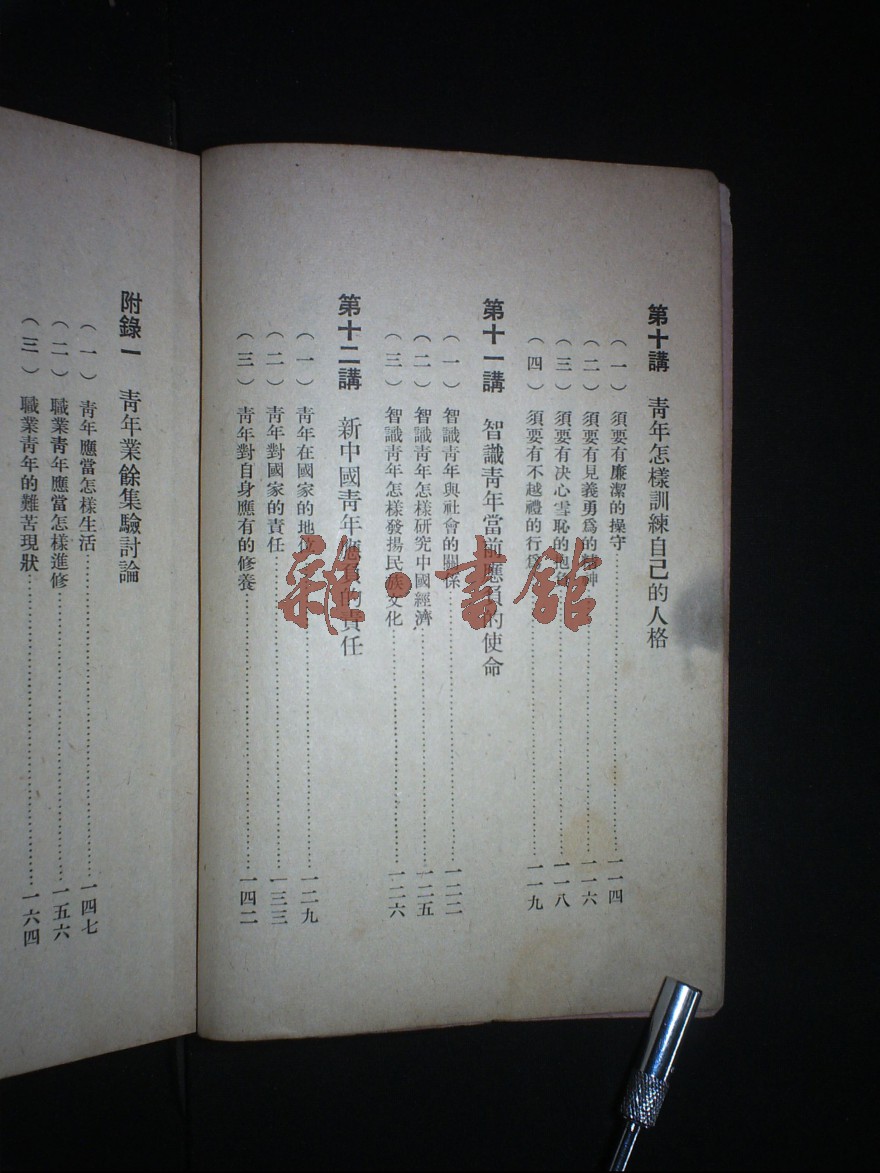 第十講 靑年怎樣訓練自己的人格
（一）須要有廉潔的操守……一一四
（二）須要有見義勇爲的精神……一一六
（三）須要有决心雪恥的抱……一一八
（四）須要有不越禮的行爲……一一九
第十一講 智識靑年當前應負的使命
（一）智識靑年與社會的關係……一二二
（二）智識靑年怎樣研究中國經濟……一二五
（三）智識靑年怎樣發揚民族文化……一二六
第十二講 新中國靑年應負的責任
（一）靑年在國家的地位……一二九
（二）靑年對國家的責任……一三三
（三）靑年對自身應有的修養……一四二
附錄一 靑年業餘集驗討論
（一）靑年應當怎樣生活……一四七
（二）職業靑年應當怎樣進修……一五六
（三）職業靑年的難苦現狀……一六四
雜·書館